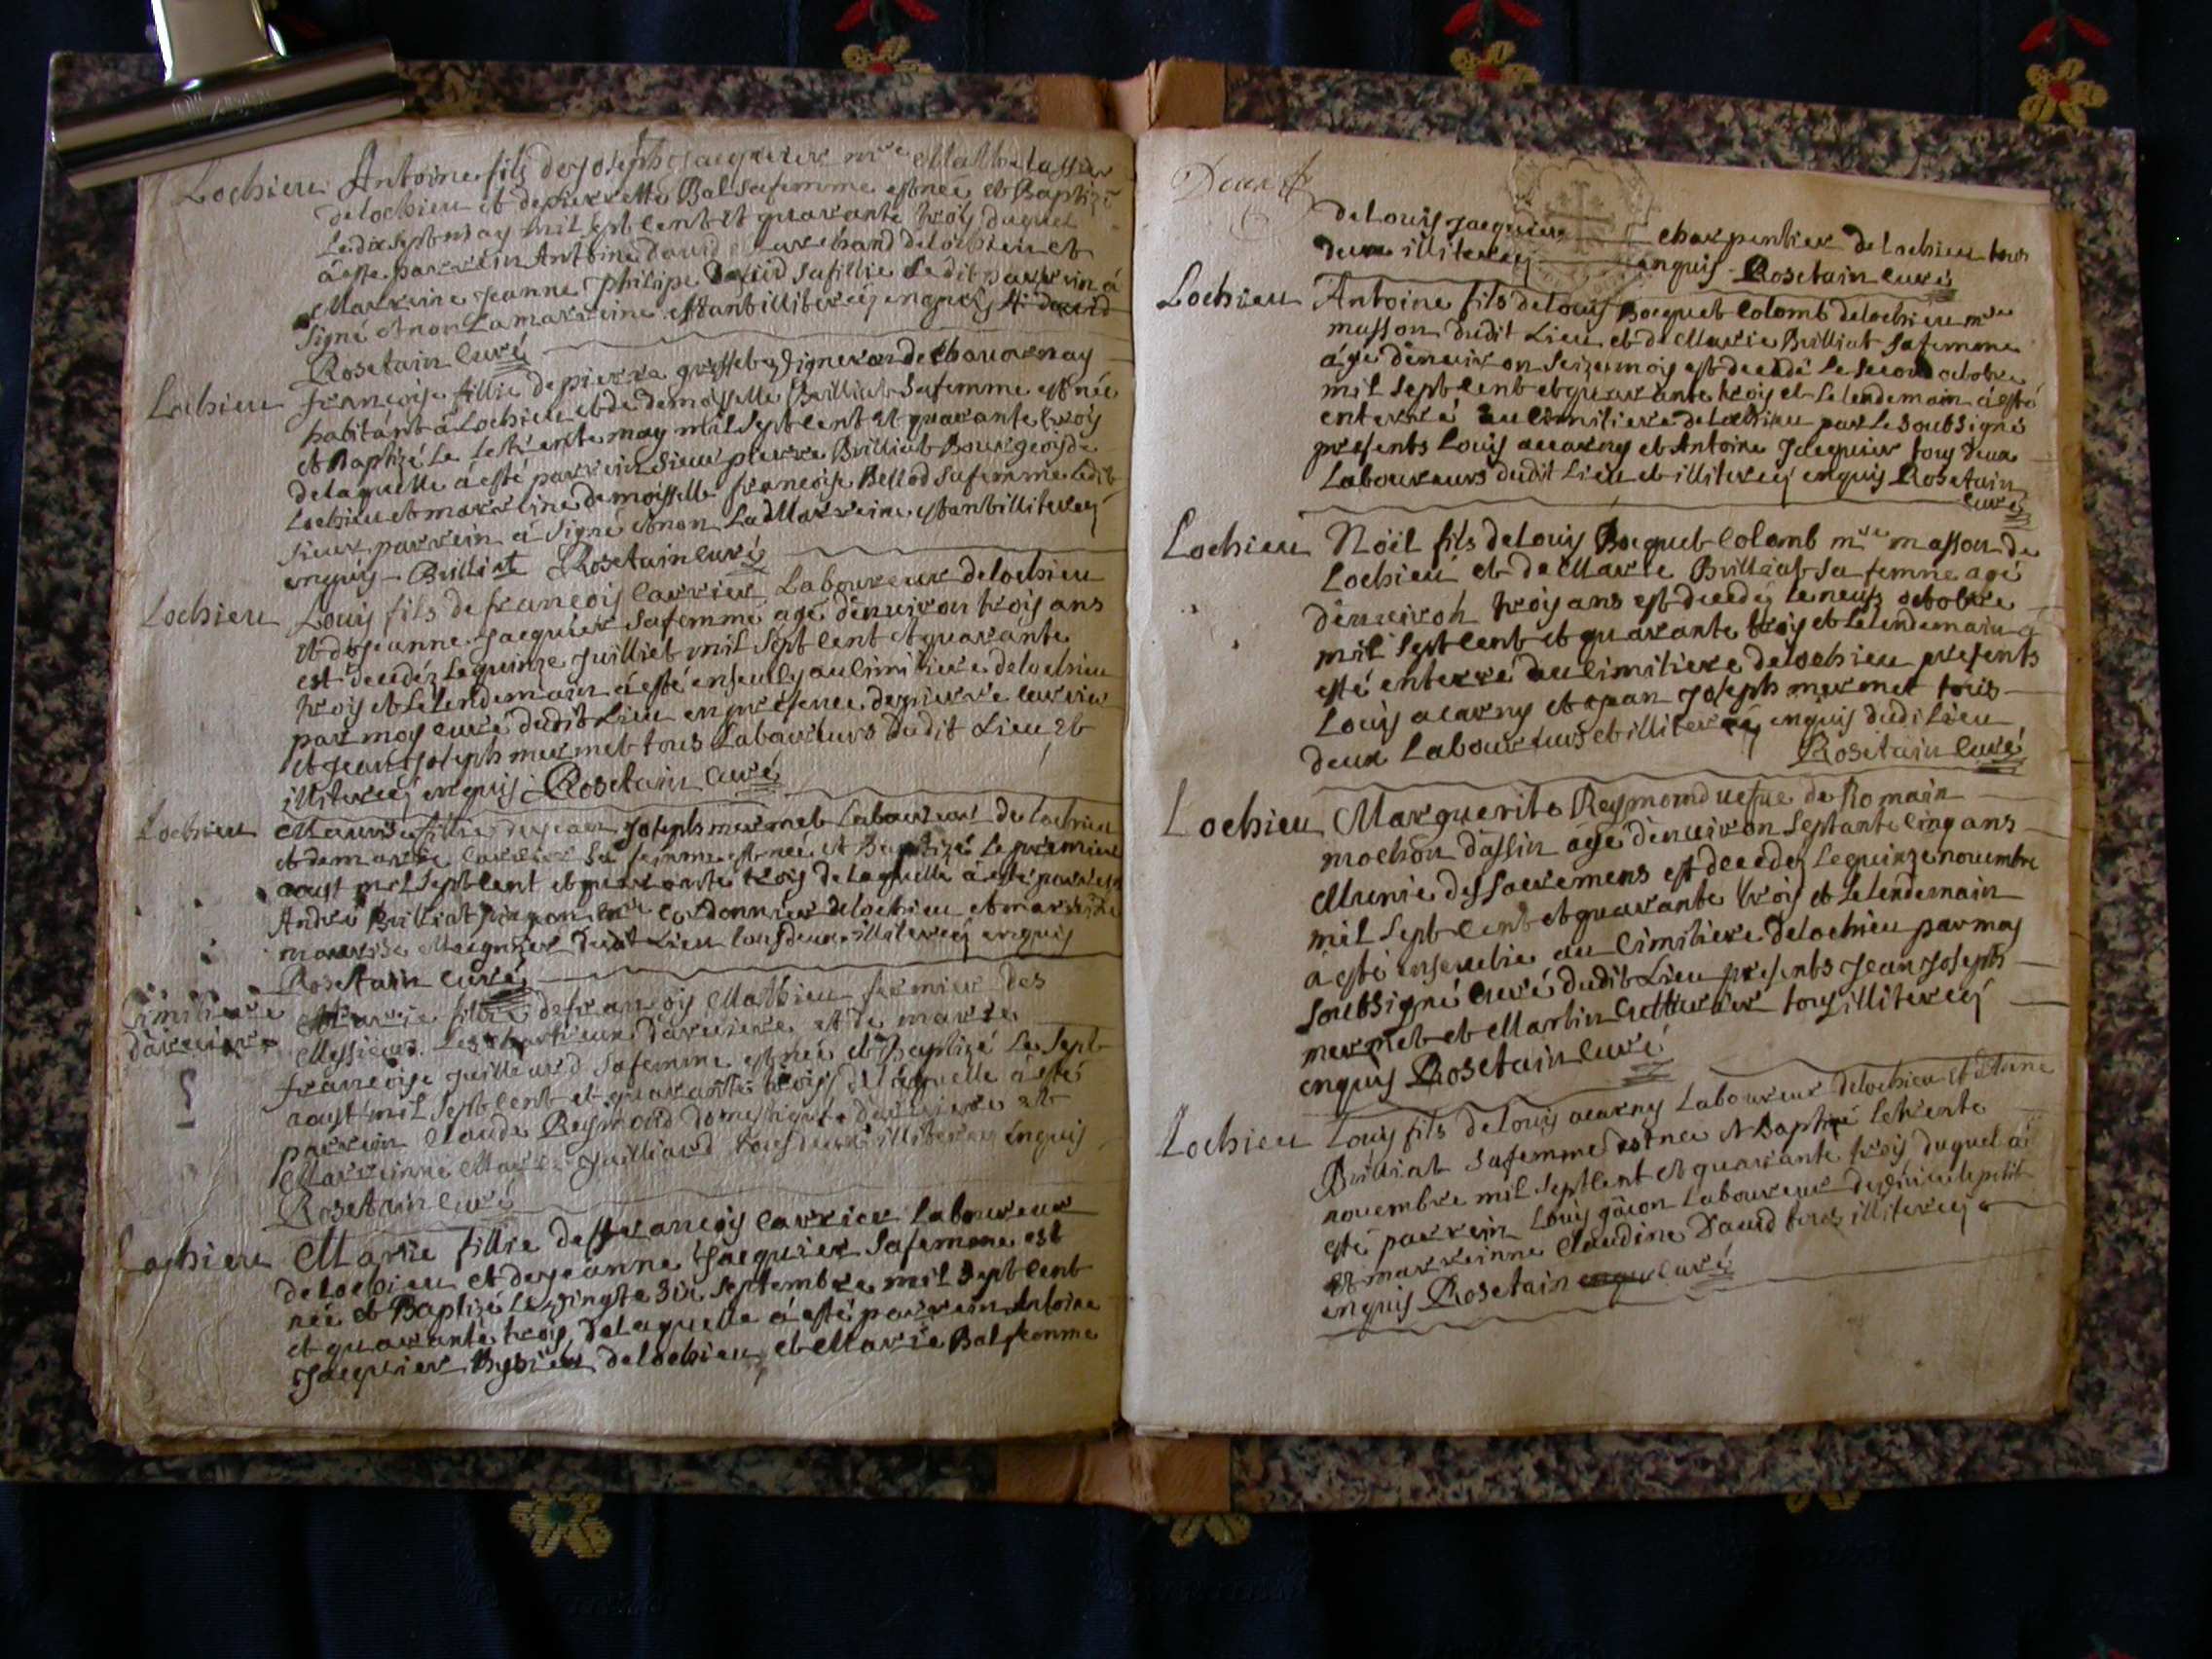 Lochieu Antoine fils de Joseph Jacquier mre Mathelassier
de Lochieu et de pierrette Bal sa femme est née et Baptizé
Le dix sept may mil sept cent et quarante trois duquel
á esté parrein Antoine David marchand de Lochieu et
Marreine Jeanne Philipe David sa fillie Ledit parrein á
signé et non La marreine estant illitereé enquis A: David
Rosetain curé
Lochieu françoise fillie de pierre vigneron de chavornay
habitant á Lochieu et de demoiselle Brilliat sa femme est née
et Baptizé Le may mil sept cent et quarante trois
de laquelle á esté parrein sieur pierre Brilliat Bourgeois de
Lochieu et marreine demoisselle françoise Bellod sa femme Ledit
sieur parrein á signé et non La Marreine estant illitereé
enquis - Brilliat Rosetain curé
Lochieu Louis fils de françois Carrier Laboureur de lochieu
et de jeanne Jacquier sa femme agé d'environ trois ans
est decedéz Le quinze Juilliet mil sept cent et quarante
trois et Le lendemain á esté ensevely au cimitiere de lochieu
par moy curé dudit Lieu en présence de pierre carrier
et Jean Joseph mermet tous Laboureurs dudit Lieu et
illitereéz enquis Rosetain curé
Lochieu Maurise fillie de jean Joseph mermet Laboureur de Lochieu
et de marie carrier sa femme est née et Baptizé Le premier
aoust mil sept cent et quarante trois de laquelle á esté parrein
André Brilliat mre cordonnier de lochieu et marreine
maurise dudit Lieu tous deux illitereéz enquis
Rosetain curé
Cimitiere d'arviere
Marie fillie de françois Mathieu fermier des
Messieurs Les chartreux d'arviere et de marie
françoise Juilliard sa femme est née et Baptizé Le sept
aoust mil sept cent et quarante trois de laquelle á esté
parrein Claude Reymond domestique d'arviere et
Marreinne Marie Juilliard tous deux illitereéz enquis
Rosetain curé
Lochieu Marie fillie de françois Carrier Laboureur
de Lochieu et de jeanne Jacquier sa femme est
née et Baptizé Le vingte six septembre mil sept cent
et quarante trois, de Laquelle á esté parrein Antoine
Jacquier de lochieu et Marie Bal femme
de Louis Jacquier charpentier de Lochieu tous
deux illitereéz enquis - Rosetain curé
Lochieu Antoine fils de Louis Bocquet Colomb de lochieu mre
masson dudit Lieu et de Marie Brilliat sa femme
ágé d'environ seize mois est decedé Le second octobre
mil sept cent et quarante trois et Le lendemain á esté
enterré au cimitiere de Lochieu par Le soubsigné
presents Louis acarny et Antoine Jacquier tous deux
Laboureurs dudit Lieu et illitereéz enquis Rosetain
curé
Lochieu Noël fils de Louis Bocquet Colomb mre masson de
Lochieu et de Marie Brilliat sa femme agé
d'environ trois ans est decedéz Le neufz octobre
mil sept cent et quarante trois et Le lendemain á
esté enterré au cimitiere de lochieu presents
Louis acarny et Jean Joseph mermet tous
deux Laboureurs et illitereéz enquis dudi Lieu
Rosetain curé
Lochieu Marguerite Reymond vefue de Romain
mochon d'assin agé d'environ septante cinq ans
Munie des sacremens est decedéz Le quinze novembre
mil sept cent et quarante trois et Le lendemain
á esté ensevelie au Cimitiere de lochieu par moy
soubsigné curé dudit Lieu presents Jean Joseph
mermet et Martin tous illitereéz
enquis Rosetain curé
Lochieu Louis fils de Louis acarny Laboureur de lochieu et d'Anne
Brilliat sa femme est née et Baptizé Le trente
novembre mil sept cent et quarante trois duquel á
esté parrein Louis Laboureur
et marreinne Claudine David tous illitereéz
enquis Rosetain curé